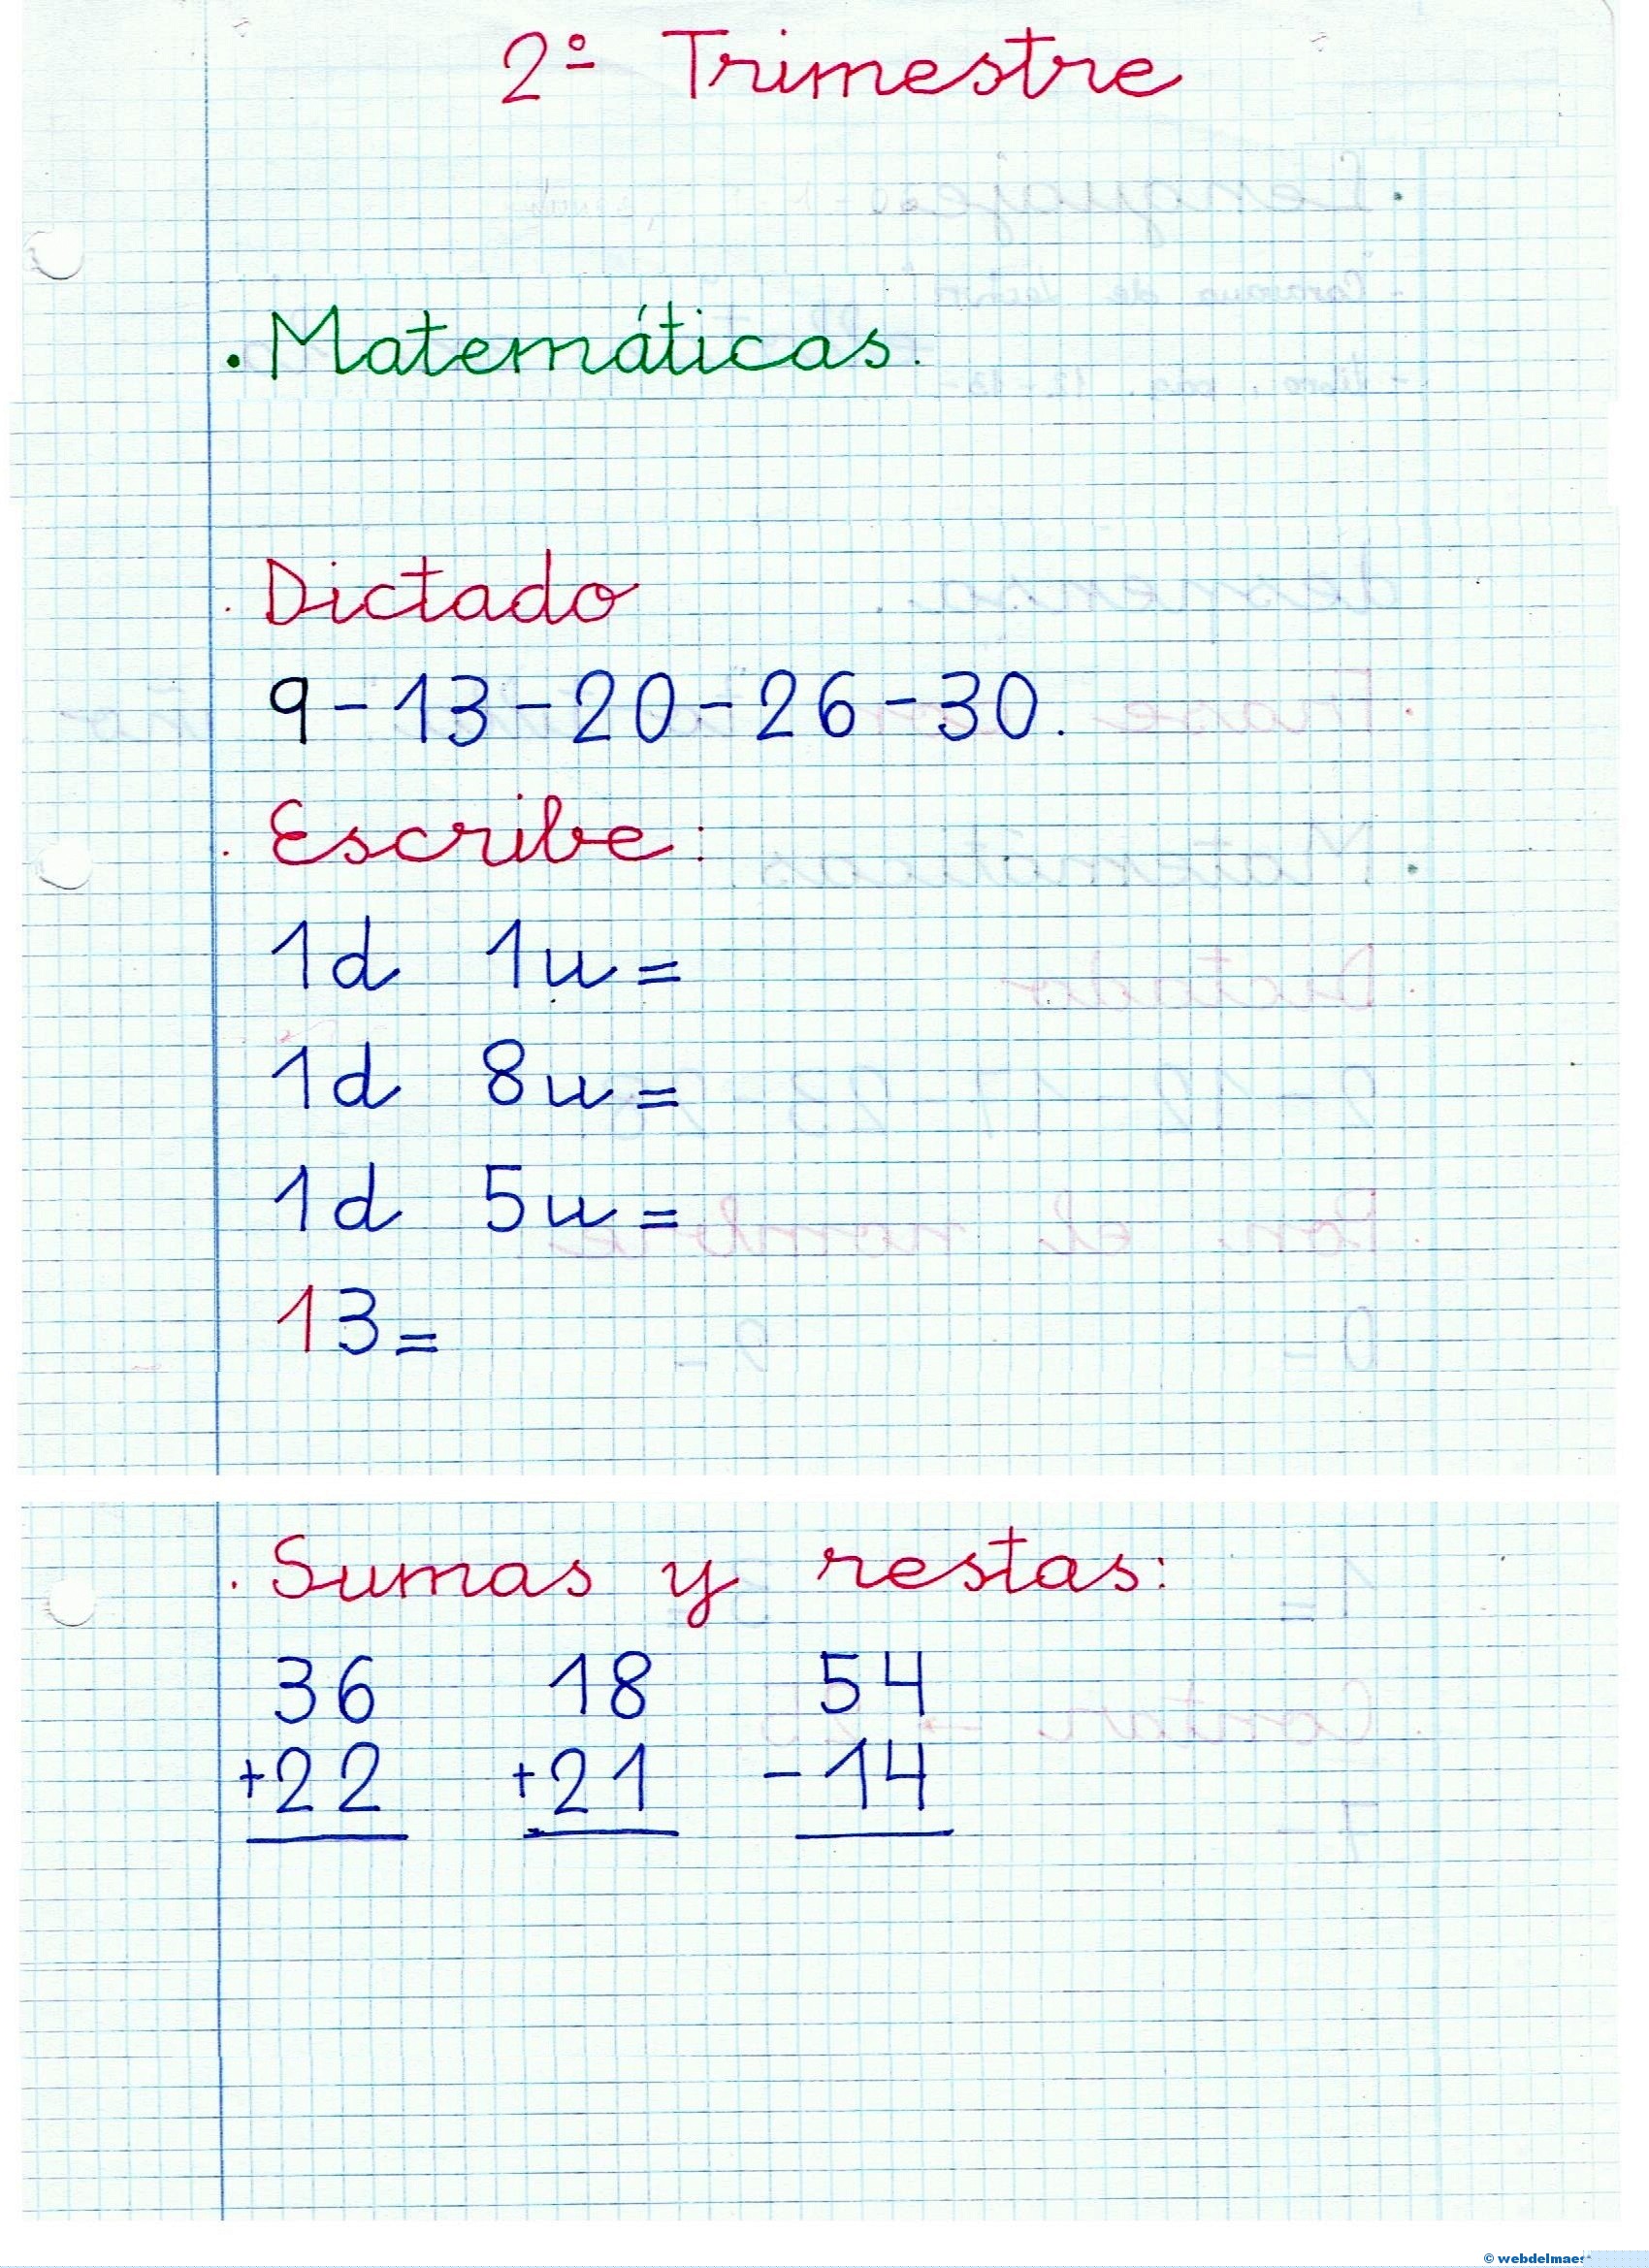 2º Trimestre
. Matemáticas.
. Dictado
9-13-20-26-30.
. Escribe:
1d 1u=
1d 8u=
1d 5u=
13=
. Sumas y restas:
36 18 54
+22 +21 -14
© webdelmaes